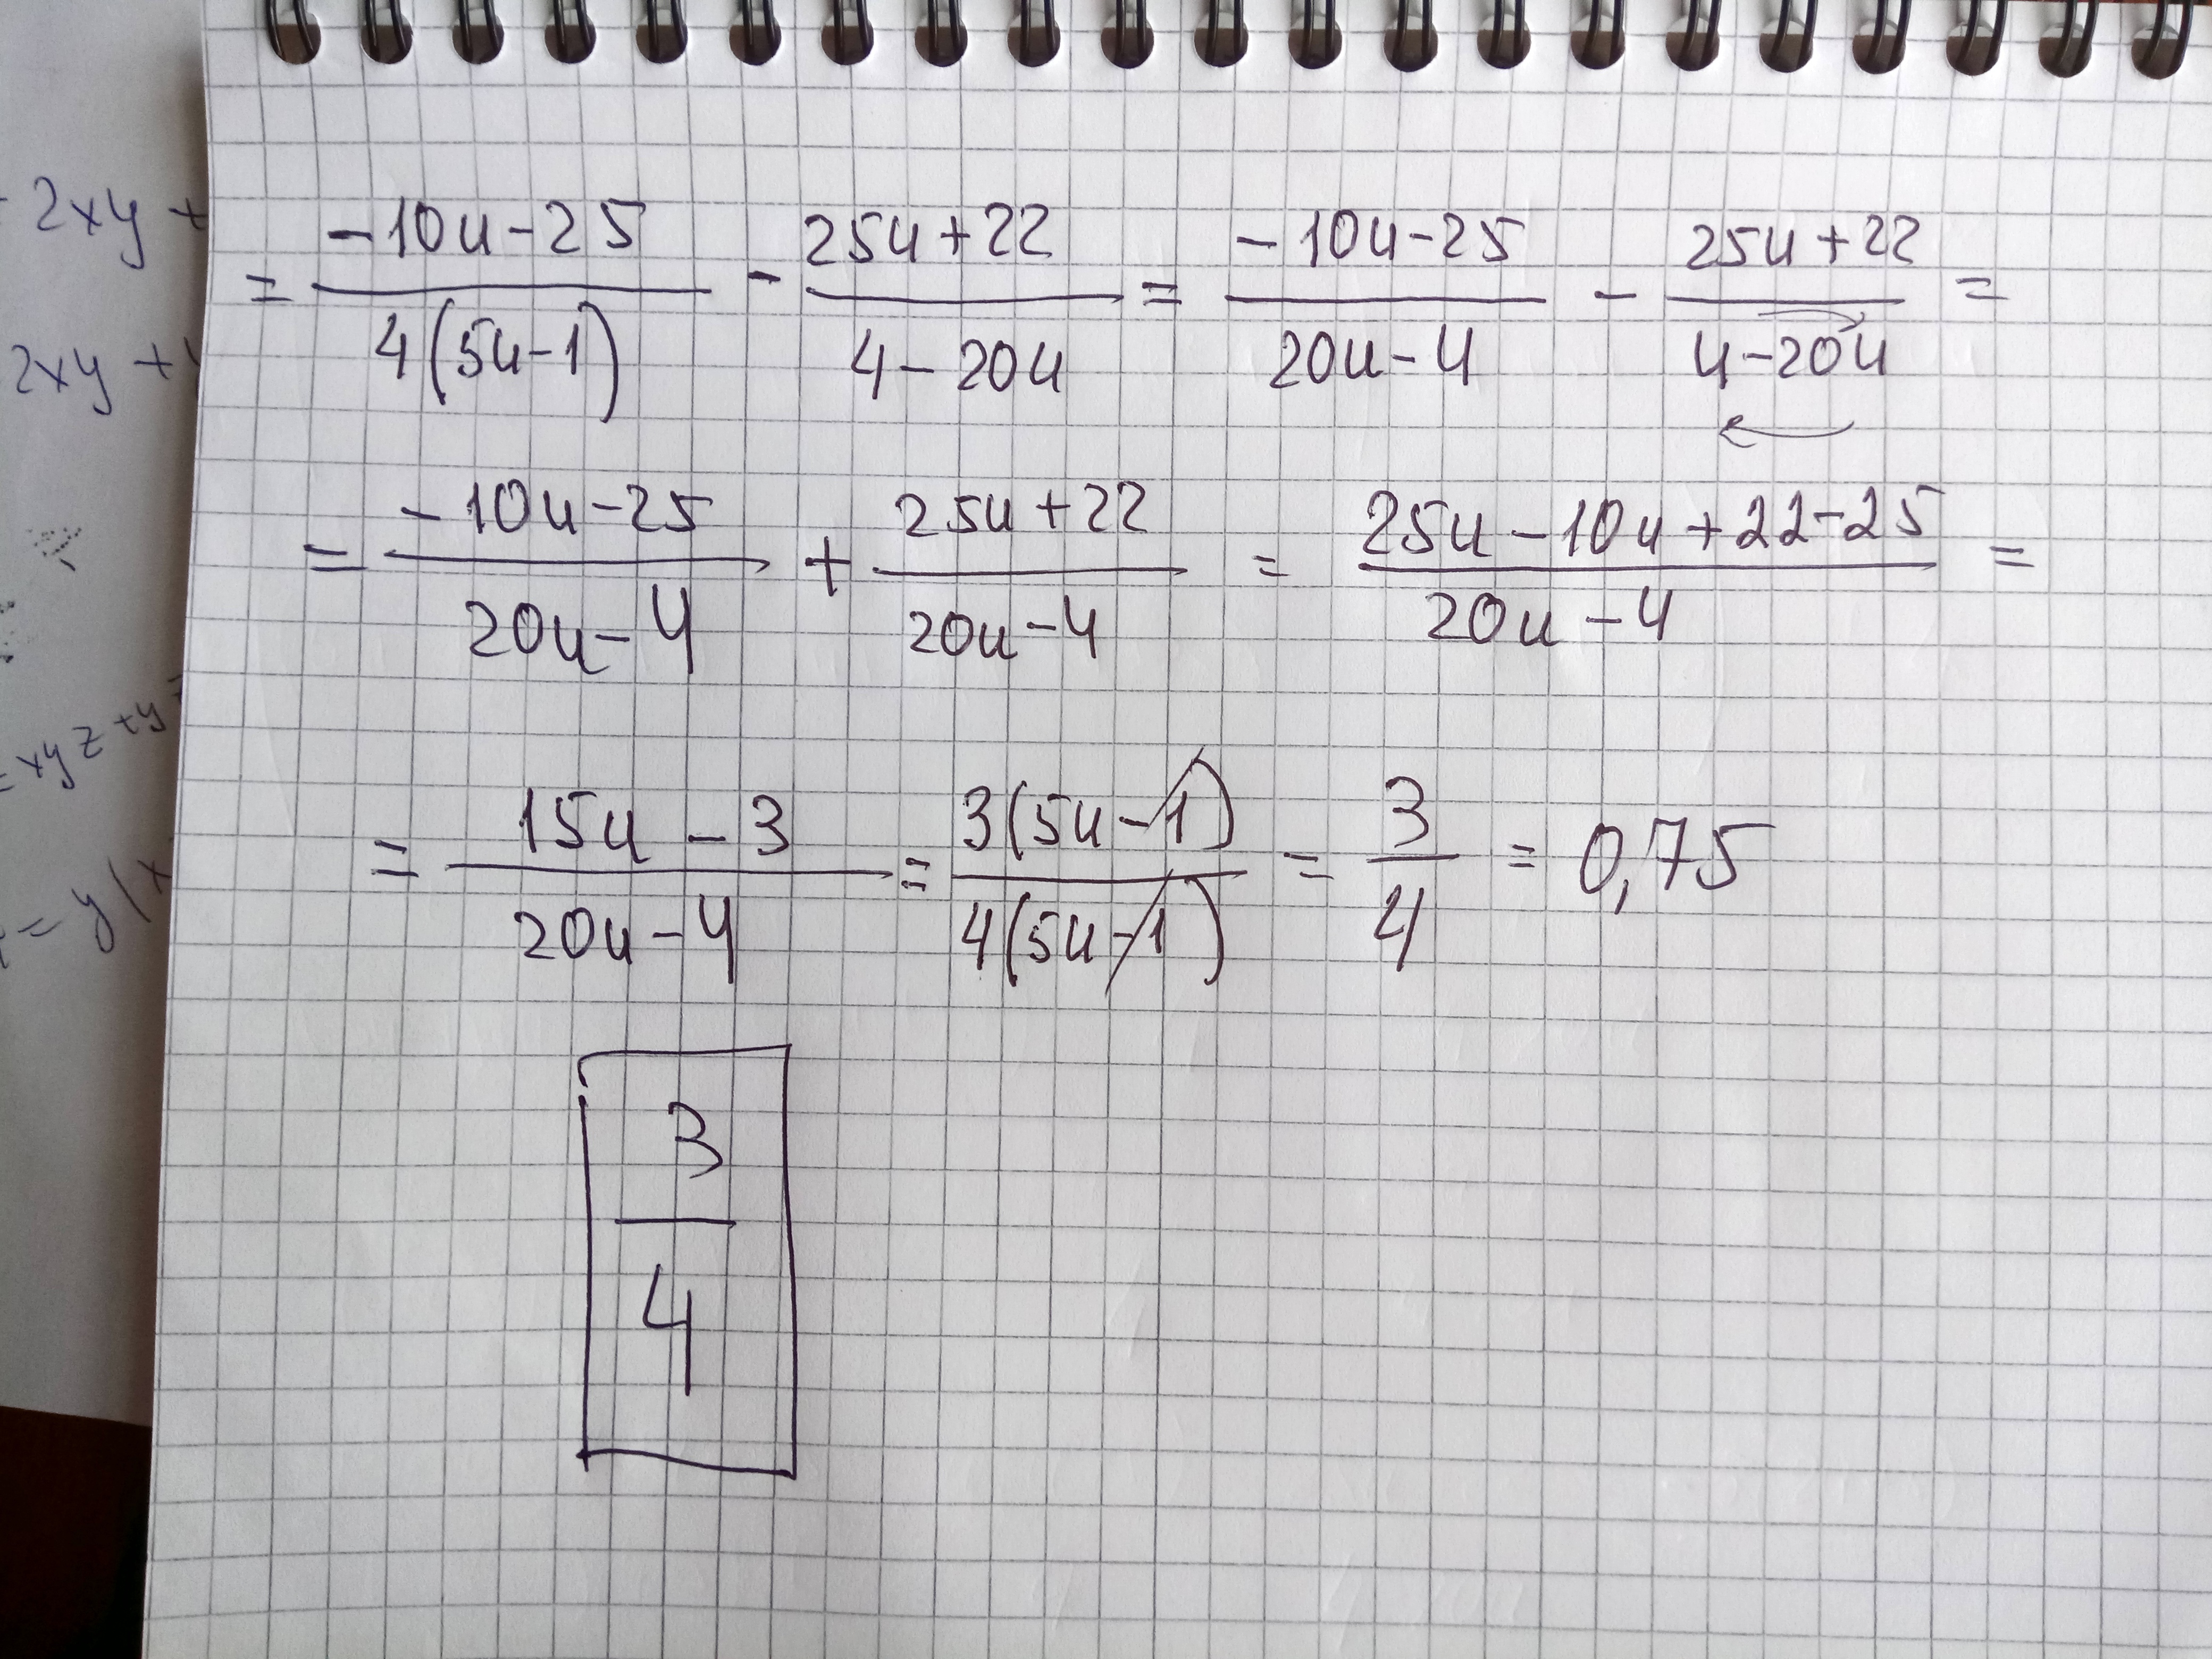 - 2xy +
2xy +
= xyz + y
= y(x
= \frac{-10u-25}{4(5u-1)} - \frac{25u+22}{4-20u} = \frac{-10u-25}{20u-4} - \frac{25u+22}{4-20u} =
= \frac{-10u-25}{20u-4} + \frac{25u+22}{20u-4} = \frac{25u-10u+22-25}{20u-4} =
= \frac{15u-3}{20u-4} = \frac{3(5u-1)}{4(5u-1)} = \frac{3}{4} = 0,75
\frac{3}{4}